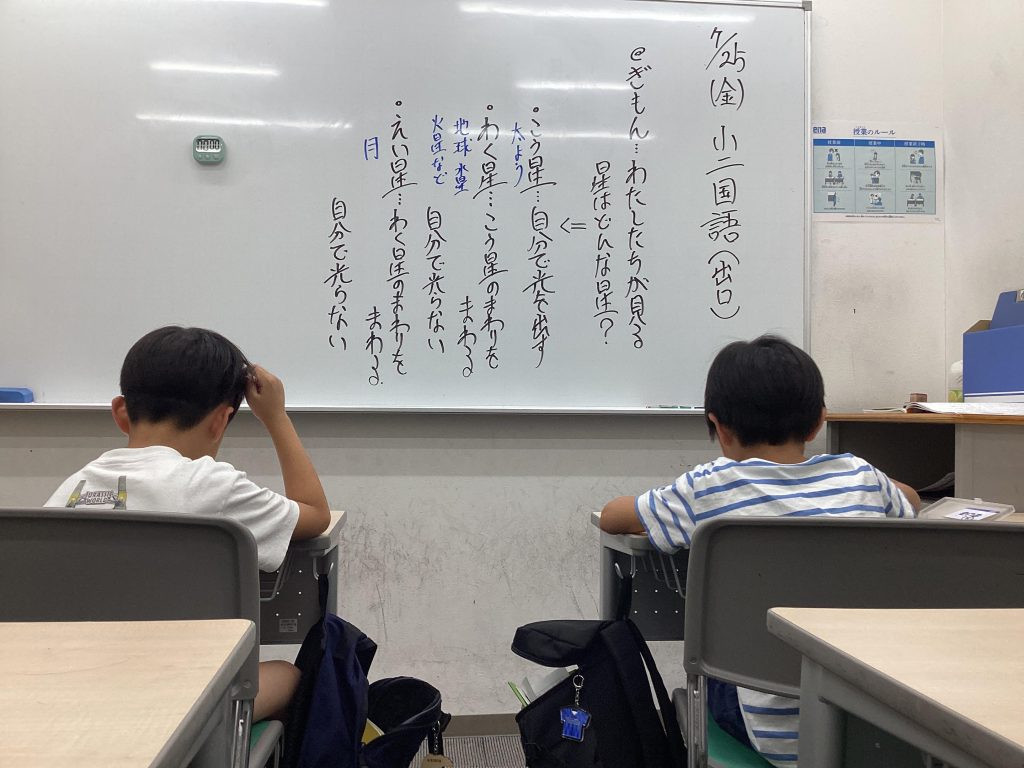 7/25(金) 小二国語(出口)
@ぎもん…わたしたちが見る
星はどんな星?
<=
•こう星…自分で光を出す
太よう
•わく星…こう星のまわりを
まわる
地球 水星
火星など
自分で光らない
•えい星…わく星のまわりを
まわる
月
自分で光らない
ena
授業のルール
授業前
授業中
授業終了時
JURASSIC
WORLD